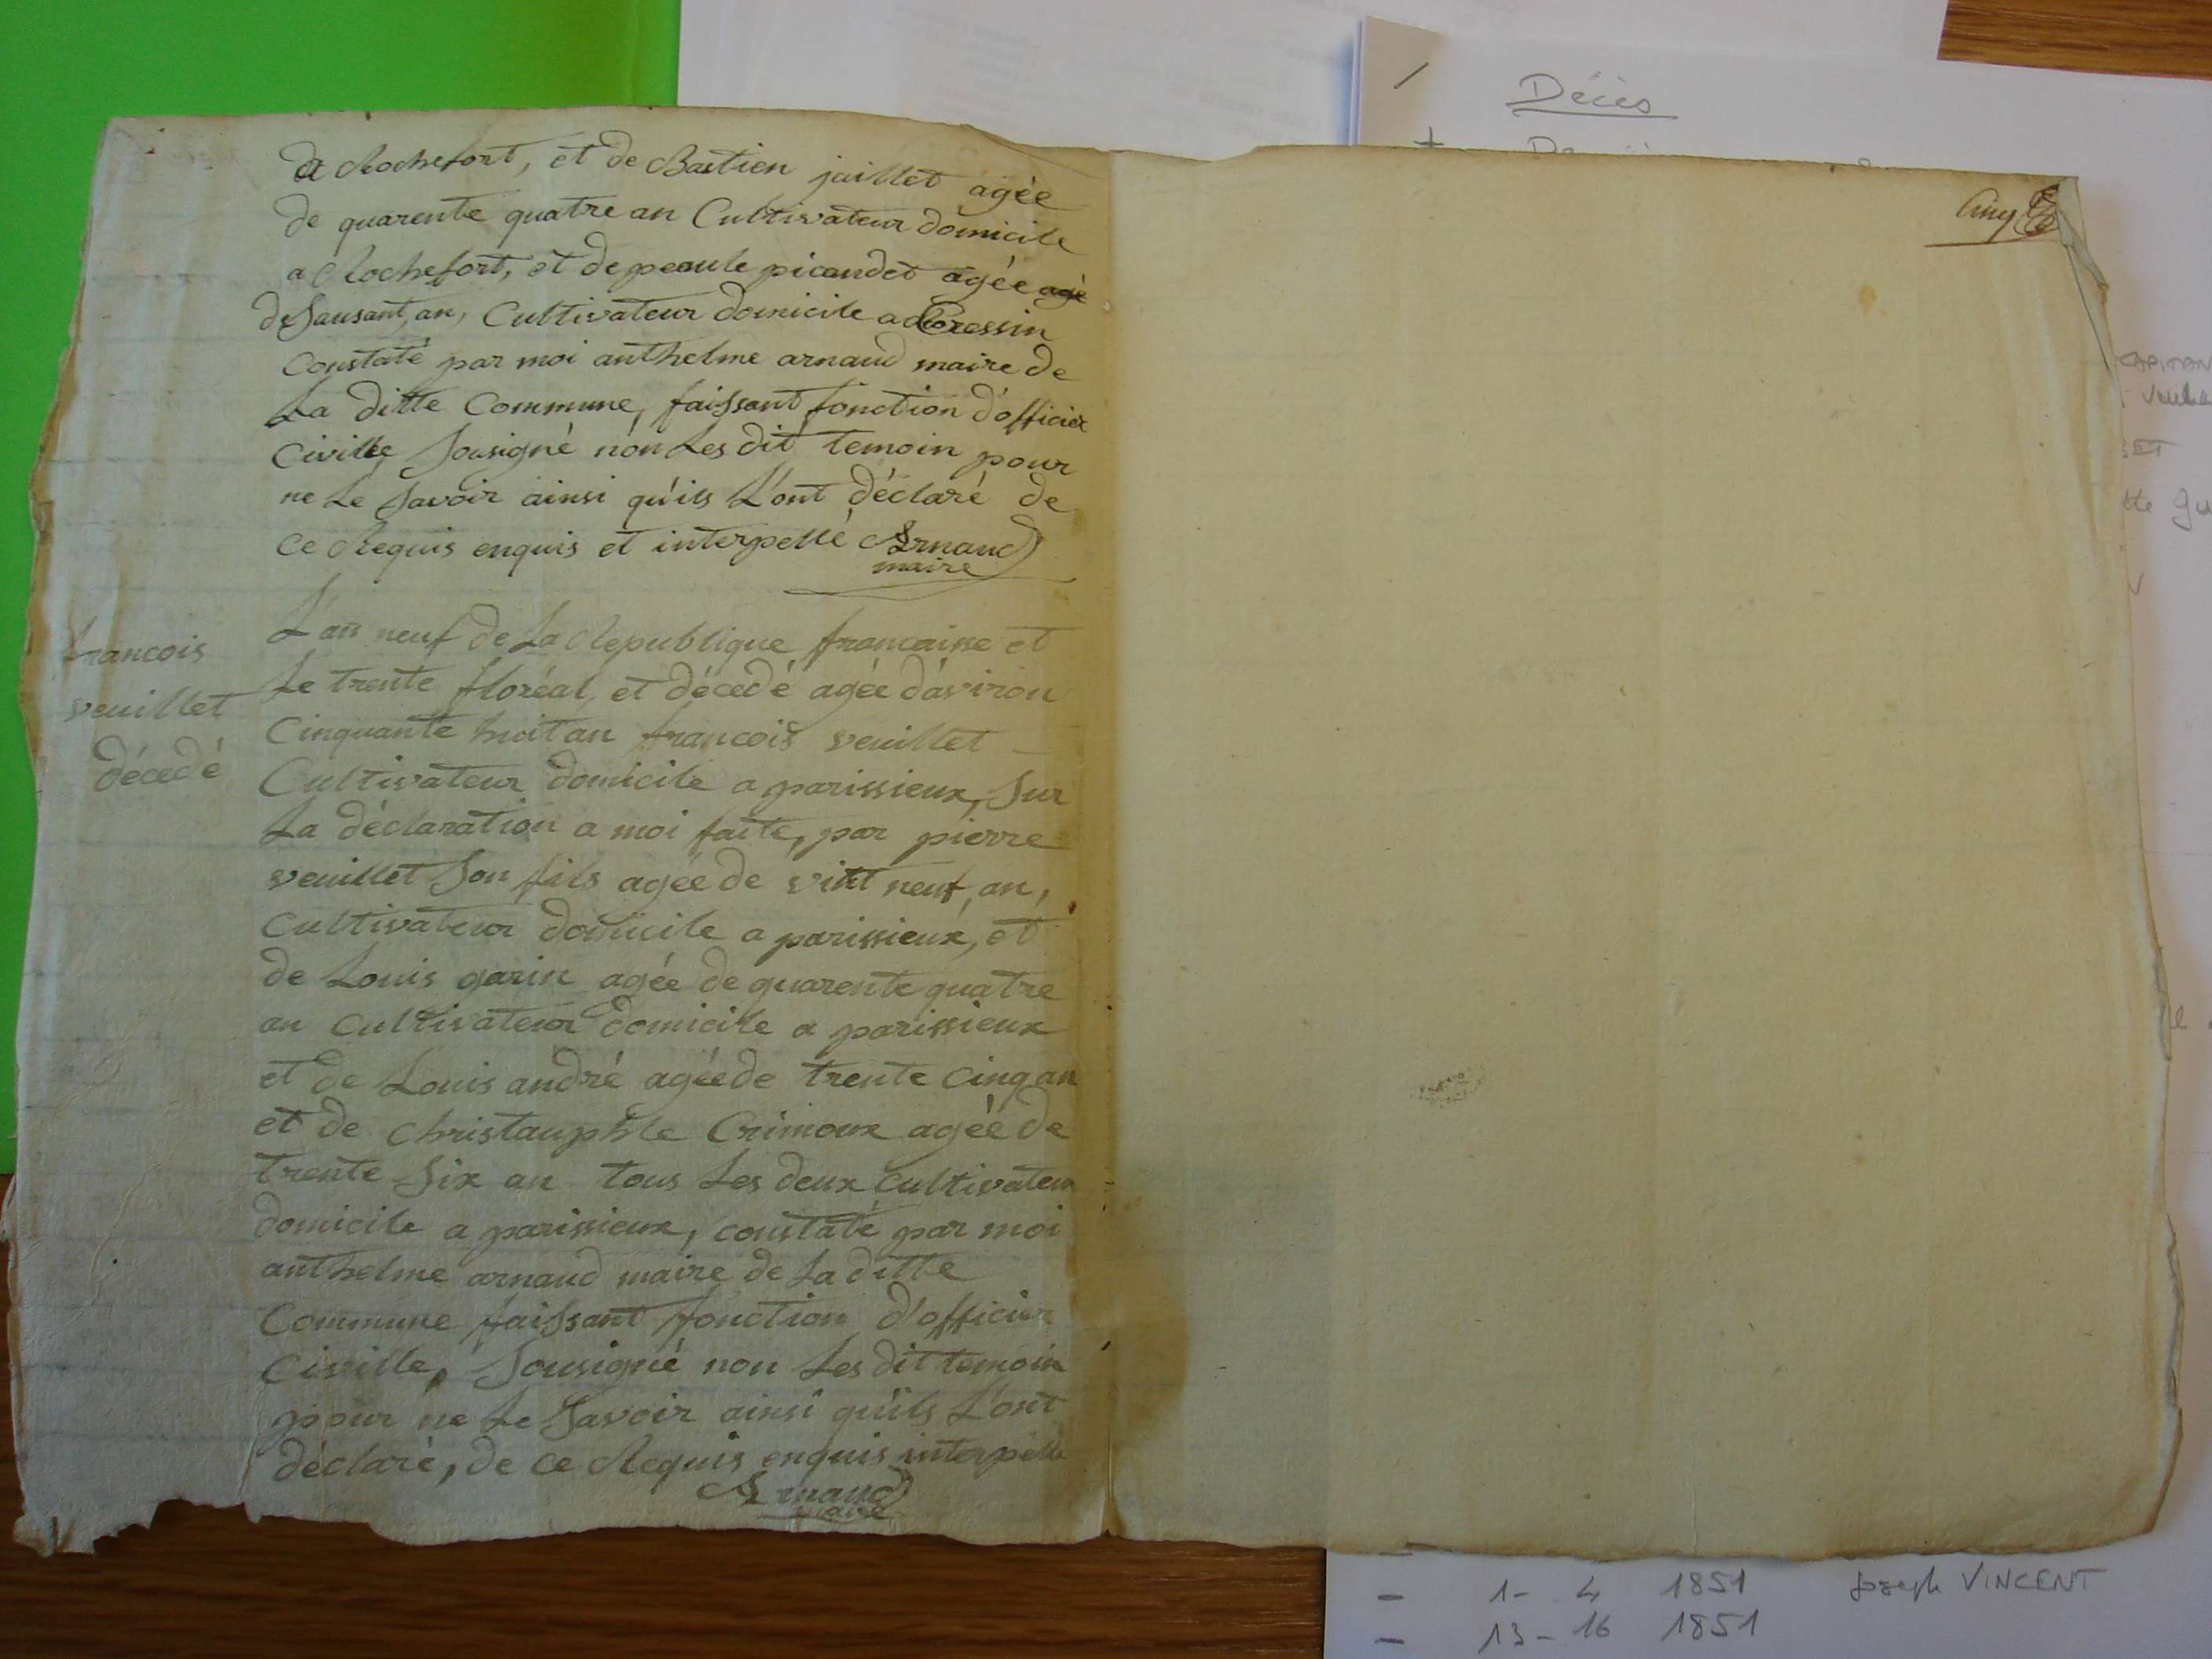 a Rochefort, et de Bastien jaillet agée
de quarente quatre an Cultivateur domicile
a Rochefort, et de peaule picaudet agée agé
de Sausant, an, Cultivateur domicile a Cressin
Constaté par moi anthelme arnaud maire de
La ditte Commune, faissant fonction d'officier
Civille Sousigné nón Les dit temoin pour
ne Le Savoir ainsi qu'ils L'ont déclaré de
Ce Requis enquis et interpellé Arnaud
maire
francois
veuillet
décedé
L'an neuf de La Republique francaisse et
Le trente floréal, et décedé agée d'aviron
Cinquante huit an francois veuillet
Cultivateur domicile a parissieux, Sur
La déclaration a moi faite, par pierre
veuillet Son fils agée de vint neuf, an,
Cultivateur domicile a parissieux, et
de Louis garin agée de quarente quatre
an Cultivateur domicile a parissieux
et de Louis andré agée de trente Cinq an
et de Christauphle Crimoux agée de
trente Six an tous Les deux Cultivateur
domicile a parissieux, constaté par moi
anthelme arnaud maire de La ditte
Commune faissant fonction d'officier
Civille, Sousigné non Les dit temoin
pour ne Le Savoir ainsi qu'ils L'ont
déclaré, de Ce Requis enquis interpellé
Arnaud
maire
Décès
Cinq
SET
1 - 4 1851 Joseph VINCENT
13 - 16 1851